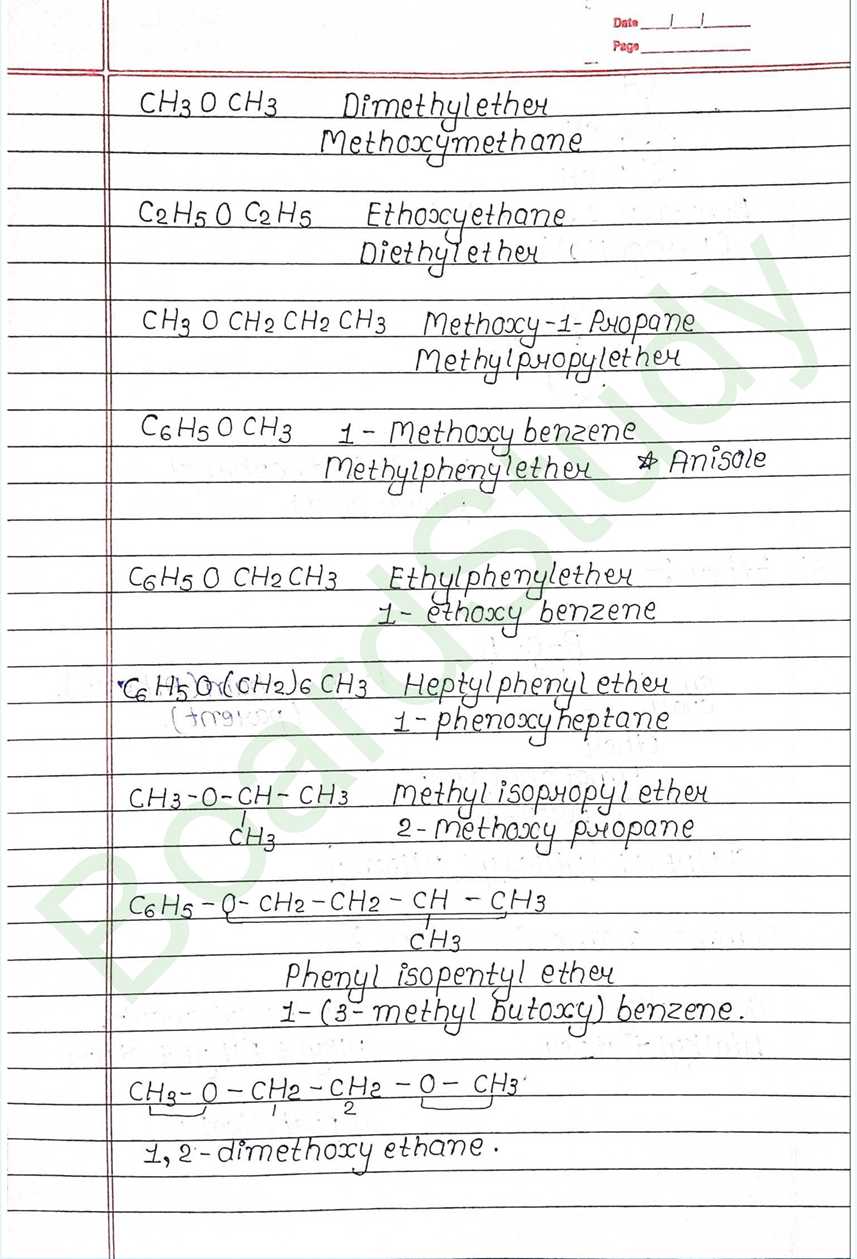 Date __/__/__
Page
CH3 O CH3 Dimethylether
Methoxymethane
C2H5 O C2H5 Ethoxyethane
Diethylether
CH3 O CH2 CH2 CH3 Methoxy-1-Propane
Methylpropylether
C6H5 O CH3 1- Methoxy benzene
Methylphenylether ☆ Anisole
C6H5 O CH2CH3 Ethylphenylether
1- ethoxy benzene
C6 H5 O (CH2)6 CH3 Heptylphenyl ether
1- phenoxyheptane
CH3-O-CH- CH3 Methyl isopropyl ether
CH3 2-Methoxy propane
C6H5 -O- CH2 -CH2 - CH - CH3
CH3
Phenyl isopentyl ether
1-(3-methyl butoxy) benzene.
CH3- O - CH2 - CH2 - O - CH3
1 2
1,2-dimethoxy ethane.
BoardStudy